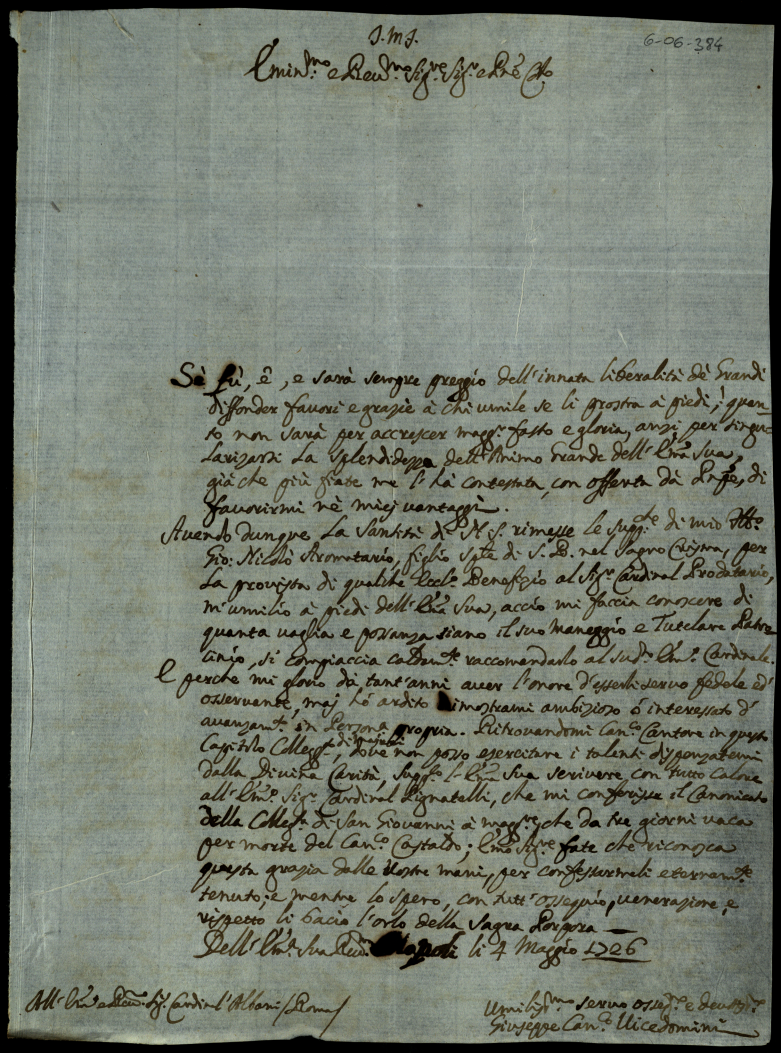 J.M.J.
6-06-384
Emin.mo e Rev.mo Sig.re Sig.r e Pñe
Se fù, è, e sarà sempre preggio dell'innata liberalità dè Grandi
diffonder favori e grazie à chi umile se li prostra à piedi; quan-
to non sarà per accrescer magg.r fasto e gloria, anzi per singu-
larizarsi la splendidezza dell'Animo Grande dell'Em.a Sua,
già che più fiate me l'hà contestata, con offerta dà Prñpe, di
favorirmi nè miej vantaggi.
Avendo dunque la Santità di N.S. rimesse le supp.e di mio
Gio: Nicolò Aromatario, figlio sp.le di S.B. nel Sagro Crisma, per
la provista di qualche Eccl.o Benefizio al Sig.r Cardinal Prodatario,
m'umilio à piedi dell'Em.a Sua, acciò mi faccia conoscere di
quanta vaglia e possanza siano il suo Maneggio e Tutelare Patro-
cinio, si compiaccia caldam.te raccomandarlo al sud.o Em.o Cardinale.
E perche mi glorio dà tant'anni aver l'onore d'esserli servo fedele ed'
osservante, maj hò ardito dimostrarmi ambizioso ò interessato d'
avanzam.ti in Persona propria. Ritrovandomi Can.co Cantore in questo
Capitolo Colleg.to, dove non posso esercitare i talenti dispenzatemi
dalla Divina Carità, supp.co l'Em.a Sua scrivere, con tutto calore
all'Em.o Sig.r Cardinal Pignatelli, che mi conferisse il Canonicato
della Colleg.ta di San Giovanni à magg.re, che da tre giorni vaca
per morte del Can.co Castaldo; Em.o Sig.re fate che riconosca
questa grazia dalle Vostre mani, per confessarmeli eternam.te
tenuto; e mentre lo spero, con tutt'ossequio, venerazione, e
rispetto li bacio l'orlo della Sagra Porpora —
Dell'Em.a Sua Rev.ma Napoli li 4 Maggio 1726
All'Em.o e Rev.mo Sig. Cardinal'Albani / Roma /
Umilis.mo servo osse.mo e devotis.o
Giuseppe Can.co Vicedomini